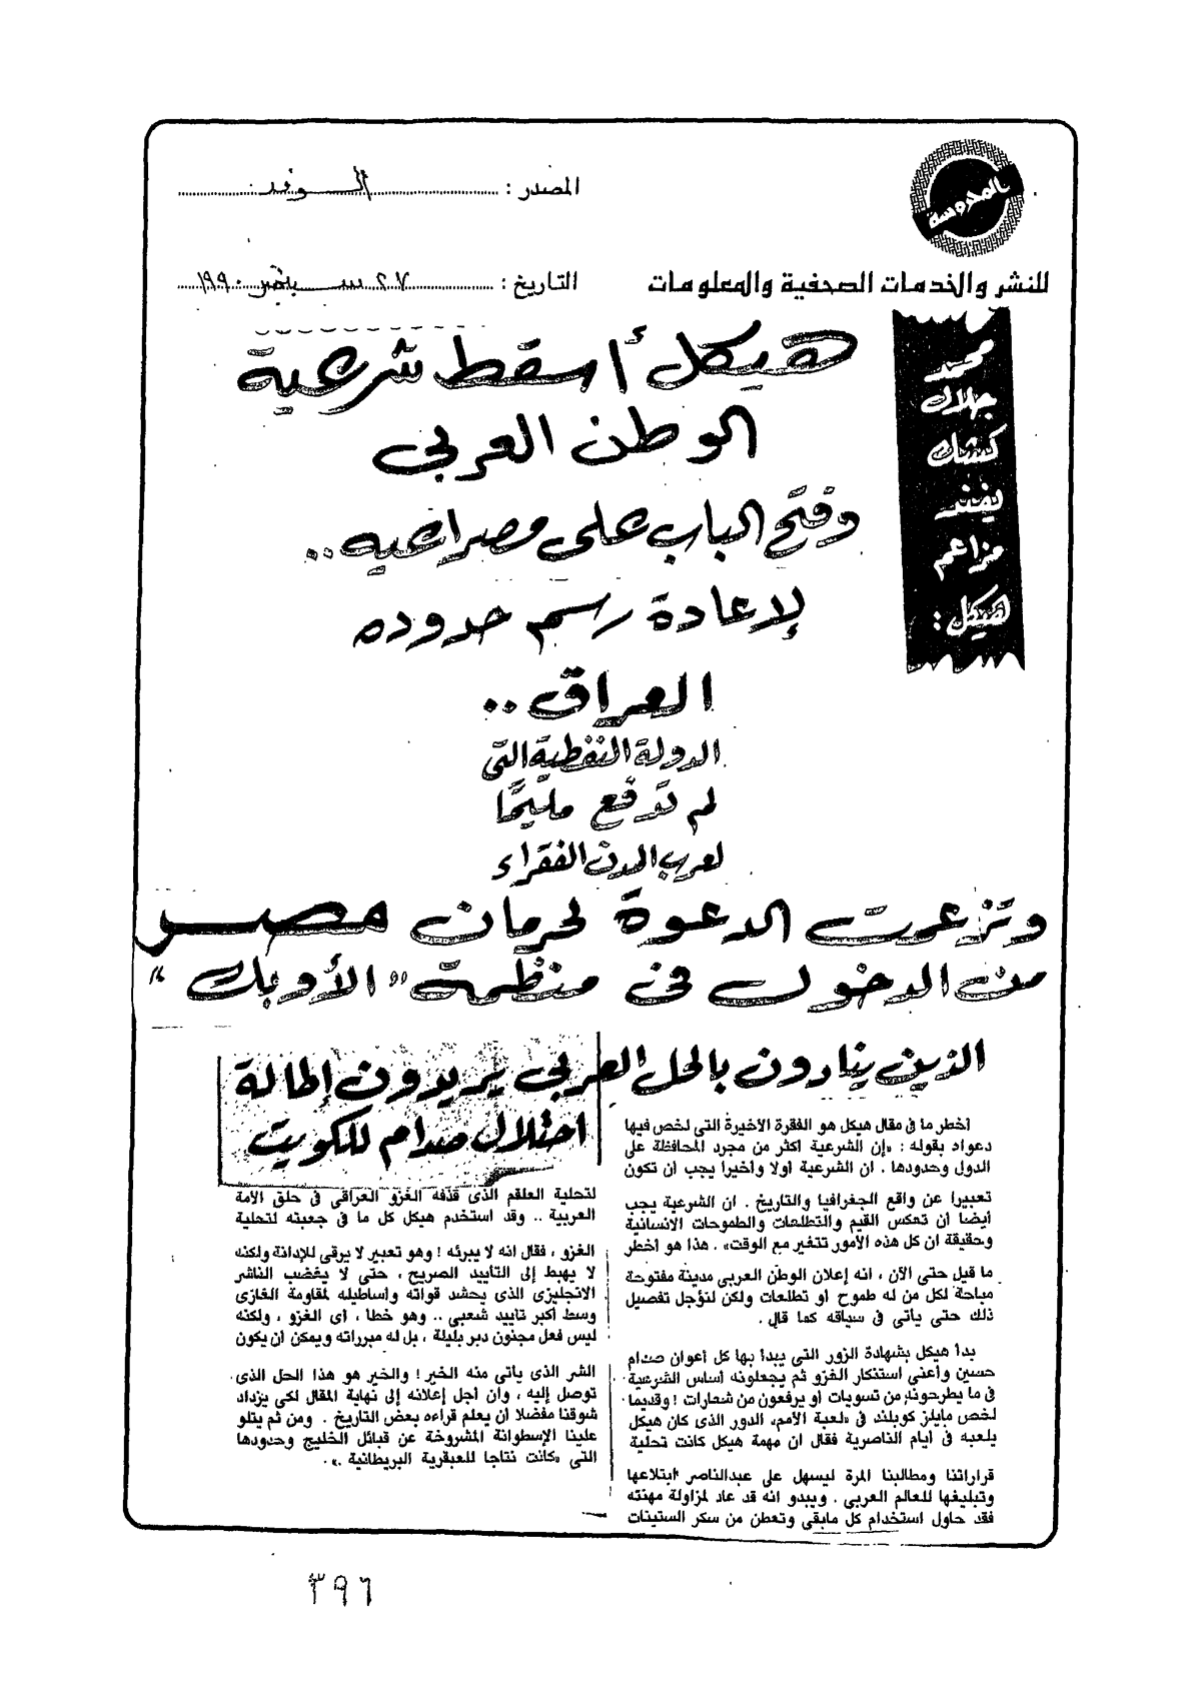 المحروسة
المصدر : الوفد
للنشر والخدمات الصحفية والمعلومات
التاريخ : ٢٧ سبتمبر ١٩٩٠
محمد
جلال
كشك
يفند
مزاعم
هيكل :
هيكل أسقط شرعية
الوطن العربى
وفتح الباب على مصراعيه ..
لإعادة رسم حدوده
العراق ..
الدولة النفطية التى
لم تدفع مليمًا
لعرب المدن الفقراء
وتزعمت الدعوة لحرمان مصر
من الدخول فى منظمة "الأوبك"
الذين ينادون بالحل العربى يريدون إطالة
احتلال صدام للكويت
اخطر ما فى مقال هيكل هو الفقرة الاخيرة التى لخص فيها
دعواه بقوله : «إن الشرعية اكثر من مجرد المحافظة على
الدول وحدودها . ان الشرعية اولا واخيرا يجب ان تكون
تعبيرا عن واقع الجغرافيا والتاريخ . ان الشرعية يجب
أيضا أن تعكس القيم والتطلعات والطموحات الإنسانية
وحقيقة ان كل هذه الأمور تتغير مع الوقت» . هذا هو اخطر
ما قيل حتى الآن ، انه إعلان الوطن العربى مدينة مفتوحة
مباحة لكل من له طموح او تطلعات ولكن لنؤجل تفصيل
ذلك حتى يأتى فى سياقه كما قال .
بدأ هيكل بشهادة الزور التى يبدا بها كل أعوان صدام
حسين وأعنى استنكار الغزو ثم يجعلونه أساس الشرعية
فى ما يطرحونه من تسويات أو يرفعون من شعارات ! وقديما
لخص مايلز كوبلند فى «لعبة الأمم» الدور الذى كان هيكل
يلعبه فى ايام الناصرية فقال ان مهمة هيكل كانت تحلية
قراراتنا ومطالبنا المرة ليسهل على عبدالناصر ابتلاعها
وتبليغها للعالم العربى . ويبدو انه قد عاد لمزاولة مهنته
فقد حاول استخدام كل مابقى وتعطن من سكر الستينات
لتحلية العلقم الذى قذفه الغزو العراقى فى حلق الأمة
العربية .. وقد استخدم هيكل كل ما فى جعبته لتحلية
الغزو ، فقال انه لا يبرئه ! وهو تعبير لا يرقى للإدانة ولكنه
لا يهبط إلى التأييد الصريح ، حتى لا يغضب الناشر
الانجليزى الذى يحشد قواته وأساطيله لمقاومة الغازى
وسط أكبر تأييد شعبى .. وهو خطا ، اى الغزو ، ولكنه
ليس فعل مجنون دبر بليلة ، بل له مبرراته ويمكن ان يكون
الشر الذى يأتى منه الخير ! والخير هو هذا الحل الذى
توصل إليه ، وان اجل إعلانه إلى نهاية المقال لكى يزداد
شوقنا مفضلا ان يعلم قراءه بعض التاريخ . ومن ثم يتلو
علينا الإسطوانة المشروخة عن قبائل الخليج وحدودها
التى «كانت نتاجا للعبقرية البريطانية» .
٣٩٦